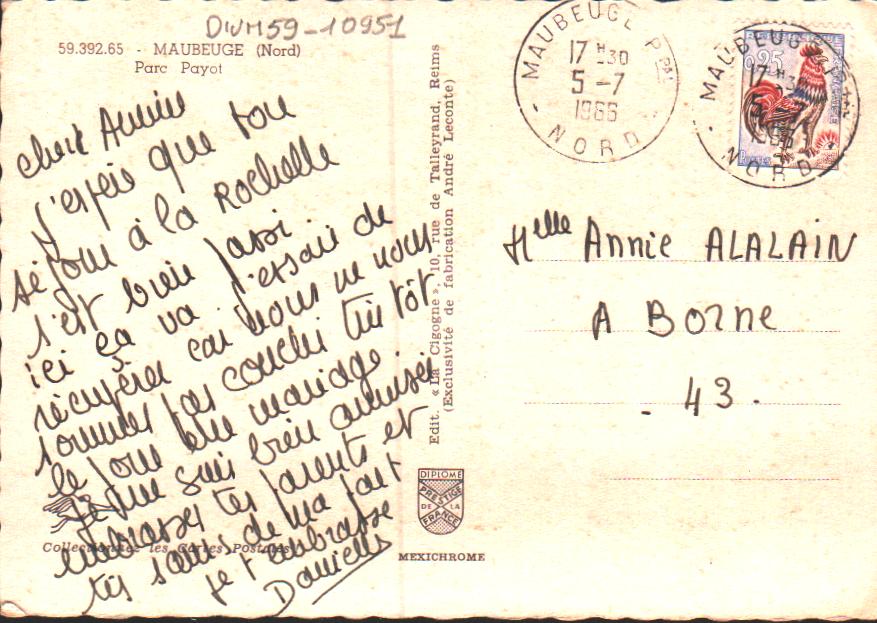 DIVM59-10951
59.392.65 - MAUBEUGE (Nord)
Parc Payot
chère Annie
j'espère que ton
séjour à la Rochelle
s'est bien passé
ici ça va j'essaie de
récupérer car nous ne nous
sommes pas couché très tôt
le jour du mariage
je me suis bien amusée
embrasses tes parents et
tes sœurs de ma part
Je t'embrasse
Danielle
Collectionnez les Cartes Postales
Edit. « La Cigogne », 10, rue de Talleyrand, Reims
(Exclusivité de fabrication André Leconte)
DIPLOME
PRESTIGE
DE LA
FRANCE
MEXICHROME
MAUBEUGE PPAL
17H30
5-7
1966
NORD
MAUBEUGE
17H30
5
NORD
0,25
Melle Annie ALALAIN
A Borne
- 43 -